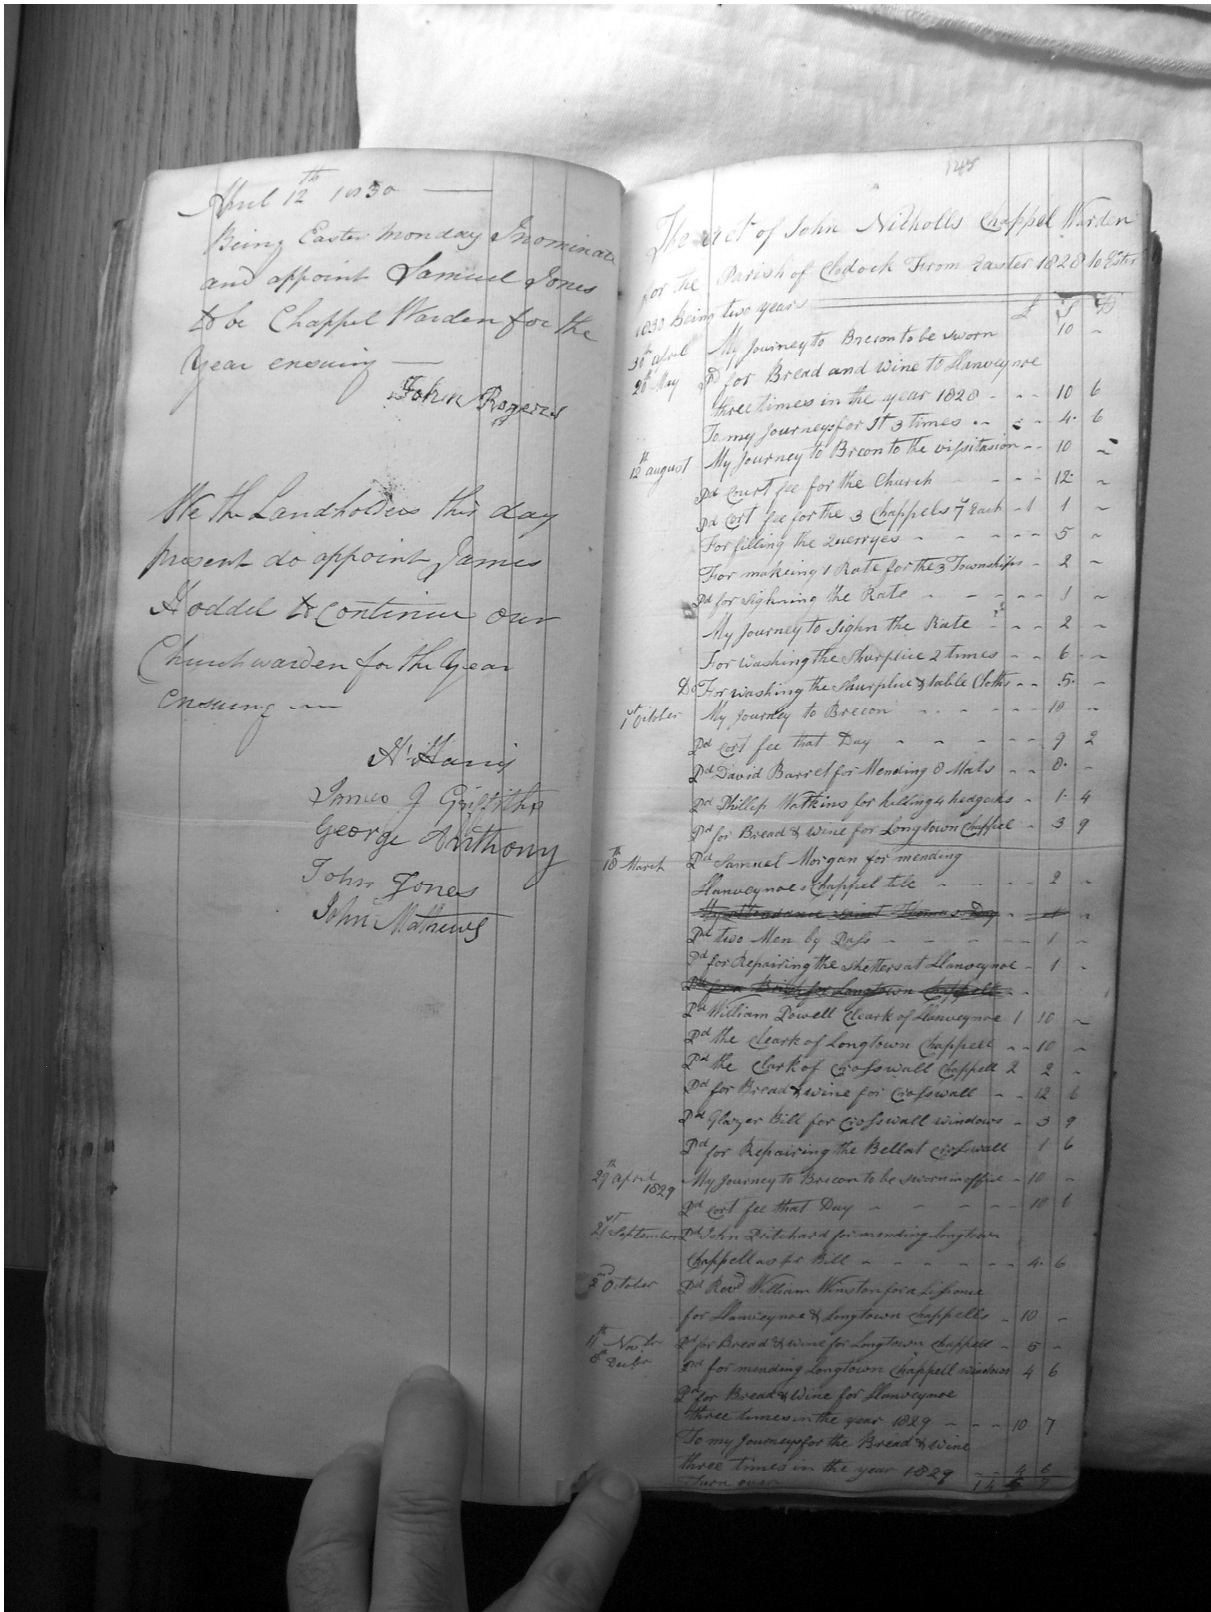 April 12th 1830
Being Easter Monday I nominate
and appoint Samuel Jones
to be Chappel Warden for the
Year ensuing
John Rogers
We the Landholders this day
present do appoint James
Hoddel to continue our
Churchwarden for the Year
ensuing
James J Griffiths
George Anthony
John Jones
John Mathews
145
The acct of John Nicholls Chappel Warden
for the Parish of Clodock From Easter 1828 to Ester
1830 Being two years £ S D
30th april My Journey to Brecon to be sworn 10 -
20th May Pd for Bread and Wine to Llanveynoe
three times in the year 1828 - - - 10 6
To my Journeys for It 3 times - - - 4 6
12th august My Journey to Brecon to the vissitasion - - 10 -
Pd Court fee for the Church - - - 12 -
Pd Cort fee for the 3 Chappels 7 Each - 1 1 -
For filling the Querryes - - - - - 5 -
For makeing 1 Rate for the 3 Townships - 2 -
Pd for Sighning the Rate - - - - - 1 -
My Journey to Sighn the Rate - - - 2 -
For washing the Shurplice 2 times - - 6 - -
Do For washing the Shurplice & table Cloths - - 5 -
1st October My Journey to Brecon - - - - - 10 -
Pd Cort fee that Day - - - - - 9 2
Pd David Barret for Mending 8 Mats - - 8 -
Pd Phillip Watkins for killing 4 hedgocks - 1 4
Pd for Bread & Wine for Longtown Chappel - 3 9
18th March Pd Samuel Morgan for mending
Llanveynoe Chappel tile - - - - 2 -
My attendance Saint Thomas Day - 1 -
Pd two Men by Pass - - - - - 1 -
Pd for Repairing the Shetters at Llanveynoe - 1 -
Longtown Chappell - -
Pd William Powell Cleark of Llanveynoe 1 10 -
Pd the Cleark of Longtown Chappell - - 10 -
Pd the Clark of Crosswall Chappell 2 2 -
Pd for Bread & wine for Crosswall - - 12 6
Pd Glazer Bill for Crosswall windows - 3 9
Pd for Repairing the Bell at Crosswall 1 6
29th April 1829 My Journey to Brecon to be sworn in office - 10 -
Pd Cort fee that Day - - - - - 18 6
21st September Pd John Pritchard for mending Longtown
Chappell as pr Bill - - - - - - 4 6
2nd October Pd Revd William Winston for a Lissence
for Llanveynoe & Longtown Chappells - 10 -
11th Novbr Pd for Bread & wine for Longtown Chappell - 5 -
8th Decbr Pd for mending Longtown Chappell windows 4 6
Pd for Bread & Wine for Llanveynoe
three times in the year 1829 - - - 10 7
To my Journeys for the Bread & wine
three times in the year 1829 - - 4 6
Turn over 14 5 9